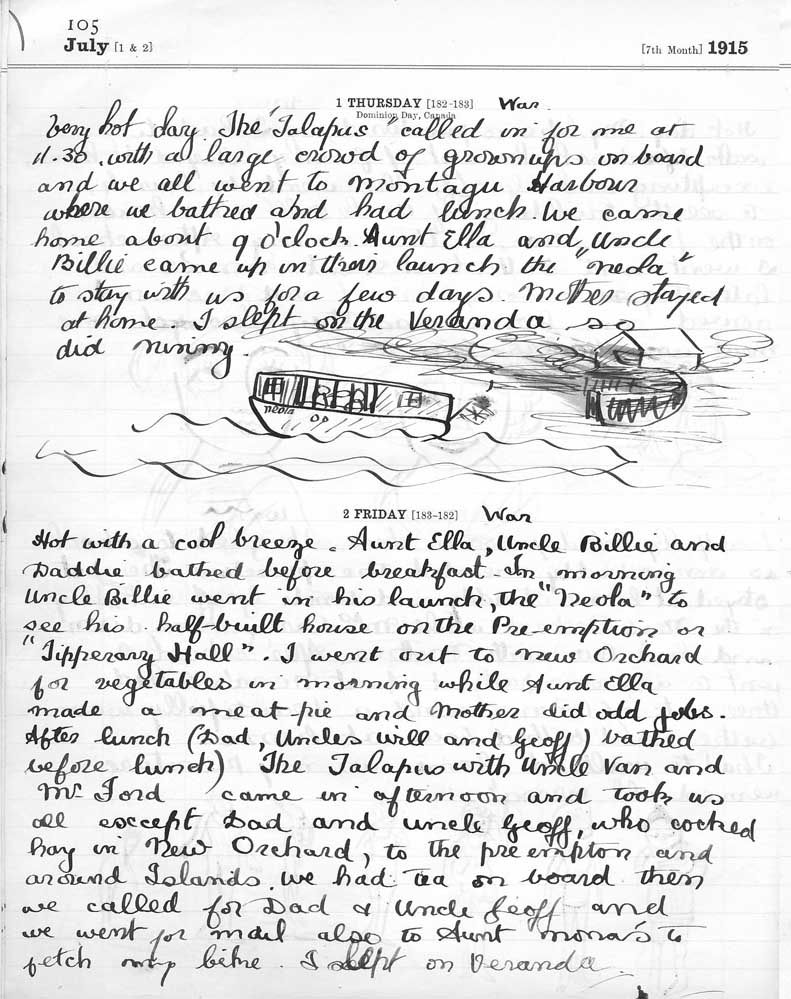 105
July [1 & 2] [7th Month] 1915
1 THURSDAY [182-183] War.
Dominion Day, Canada
Very hot day. The "Talapus" called in for me at
11.30. with a large crowd of grownups on board
and we all went to Montagu Harbour
where we bathed and had lunch. We came
home about 9 o'clock. Aunt Ella and Uncle
Billie came up in their launch the "Neola"
to stay with us for a few days. Mother stayed
at home. I slept on the Veranda so
did Ninny.
neola
2 FRIDAY [183-182] War
Hot with a cool breeze. Aunt Ella, Uncle Billie and
Daddie bathed before breakfast. In morning
Uncle Billie went in his launch, the "Neola" to
see his half-built house on the Pre-emption or
"Tipperary Hall". I went out to New Orchard
for vegetables in morning while Aunt Ella
made a meat-pie and Mother did odd jobs.
After lunch (Dad, Uncles Will and Geoff) bathed
before lunch) The Talapus with Uncle Van and
Mr Ford came in afternoon and took us
all except Dad and Uncle Geoff, who cocked
hay in New Orchard, to the pre empton and
around Islands. We had tea on board then
we called for Dad & Uncle Geoff and
we went for mail also to Aunt Mona's to
fetch my bike. I slept on Veranda.